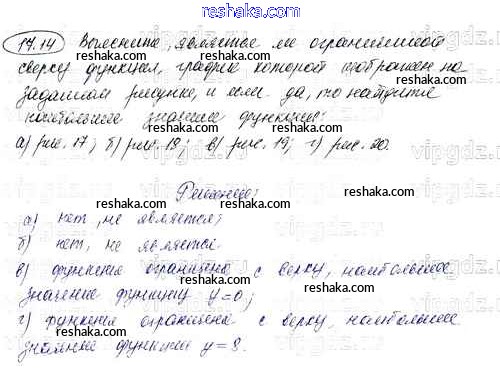 reshaka.com
17.14 Выясните, является ли ограниченной
сверху функция, график которой изображен на
reshaka.com
заданном рисунке, и если да, то найдите
reshaka.com
наибольшее значение функции:
reshaka.com
а) рис. 17; б) рис. 18; в) рис. 19; г) рис. 20.
reshaka.com
Решение:
reshaka.com
а) нет, не является;
б) нет, не является
reshaka.com
в) функция ограничена с верху, наибольшее
reshaka.com
значение функции y=0;
г) функция ограничена с верху, наибольшее
reshaka.com
значение функции y=3.